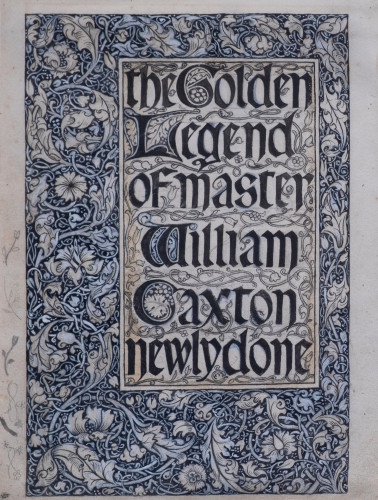 the Golden
Legend
of master
William
Caxton
newly done